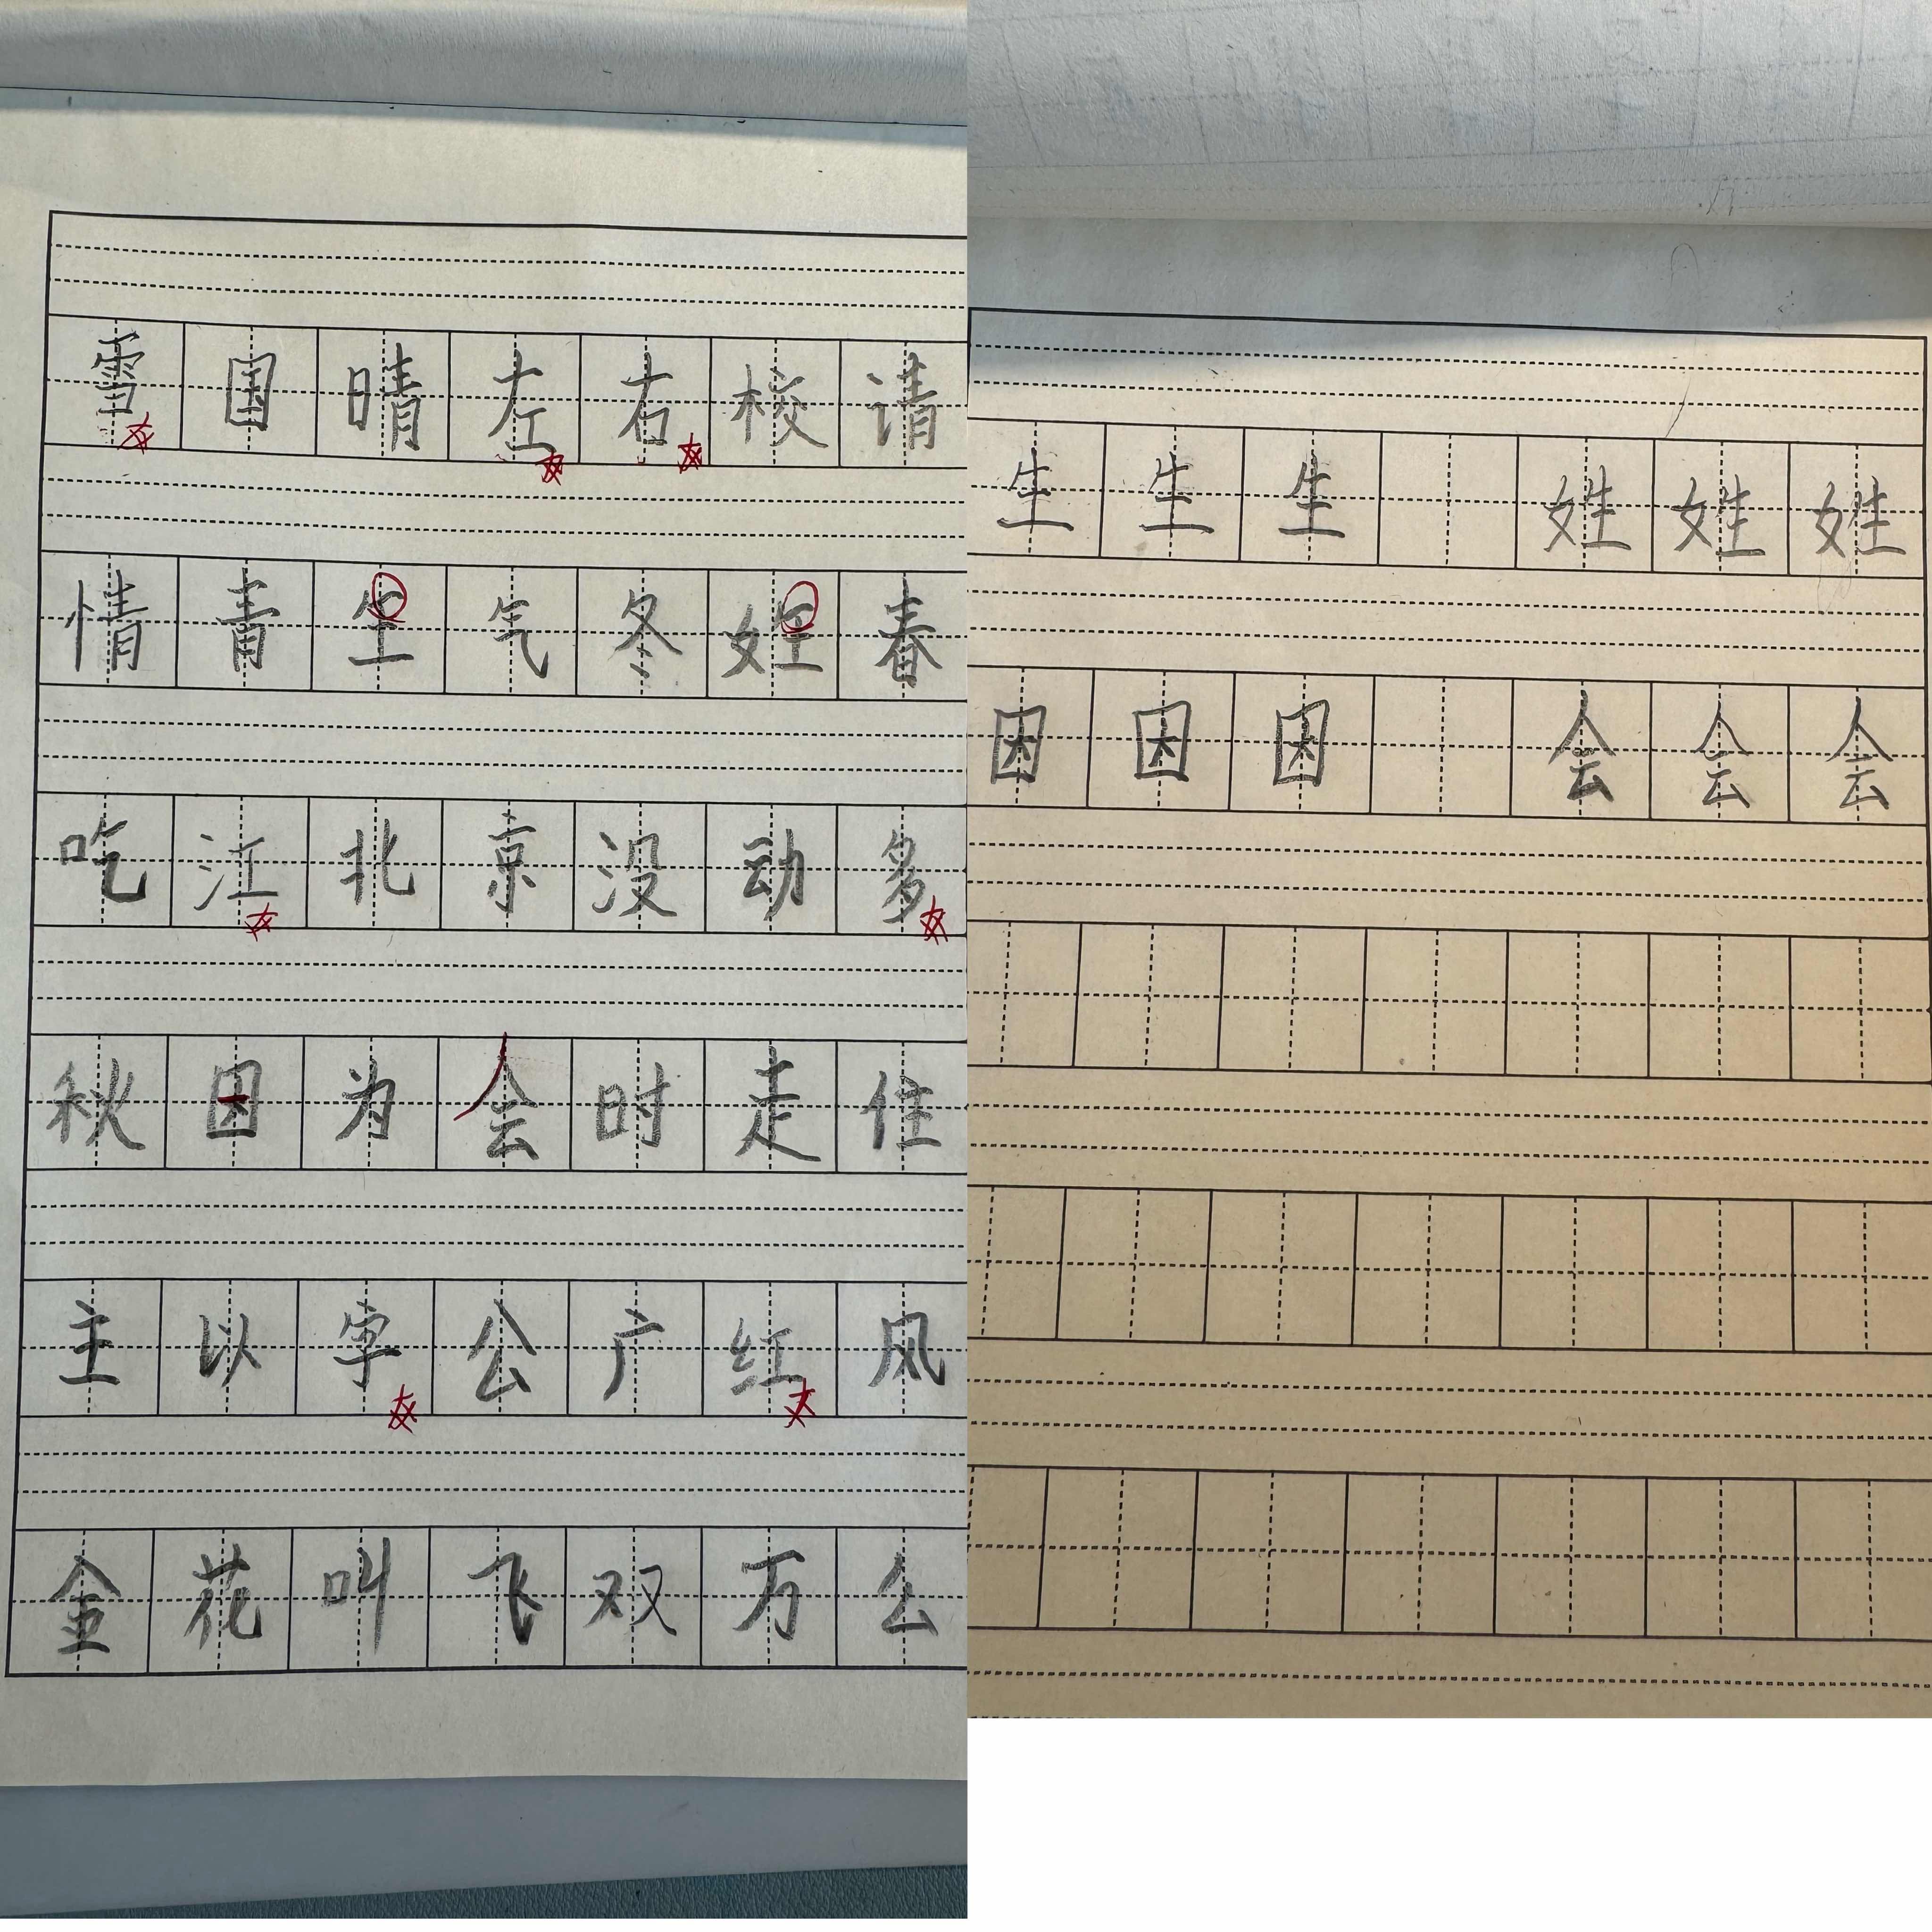 雪国晴左右校请
情青生气冬姓春
吃江北京没动多
秋因为会时走住
主以字公广红风
金花叫飞双万么
生生生姓姓姓
因因因会会会